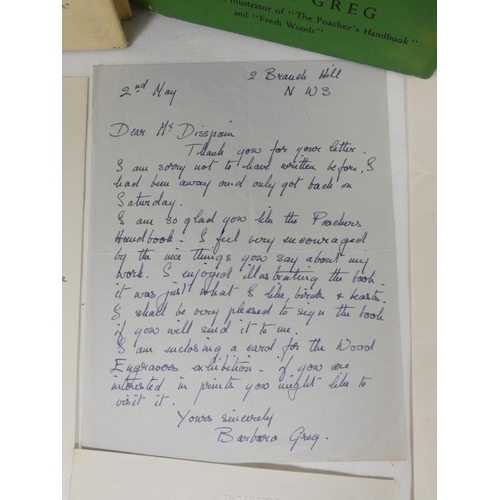 GREG
Illustrator of "The Poacher's Handbook"
and "Fresh Woods"
2 Branch Hill
2nd May N W 3
Dear Mr Disspain
Thank you for your letter.
I am sorry not to have written before, I
had been away and only got back on
Saturday.
I am so glad you like the Poachers
Handbook. I feel very encouraged
by the nice things you say about my
work. I enjoyed illustrating the book -
it was just what I like, birds & beasts.
I shall be very pleased to sign the book
if you will send it to me.
I am enclosing a card for the Wood
Engravers exhibition - if you are
interested in prints you might like to
visit it.
Yours sincerely
Barbara Greg.